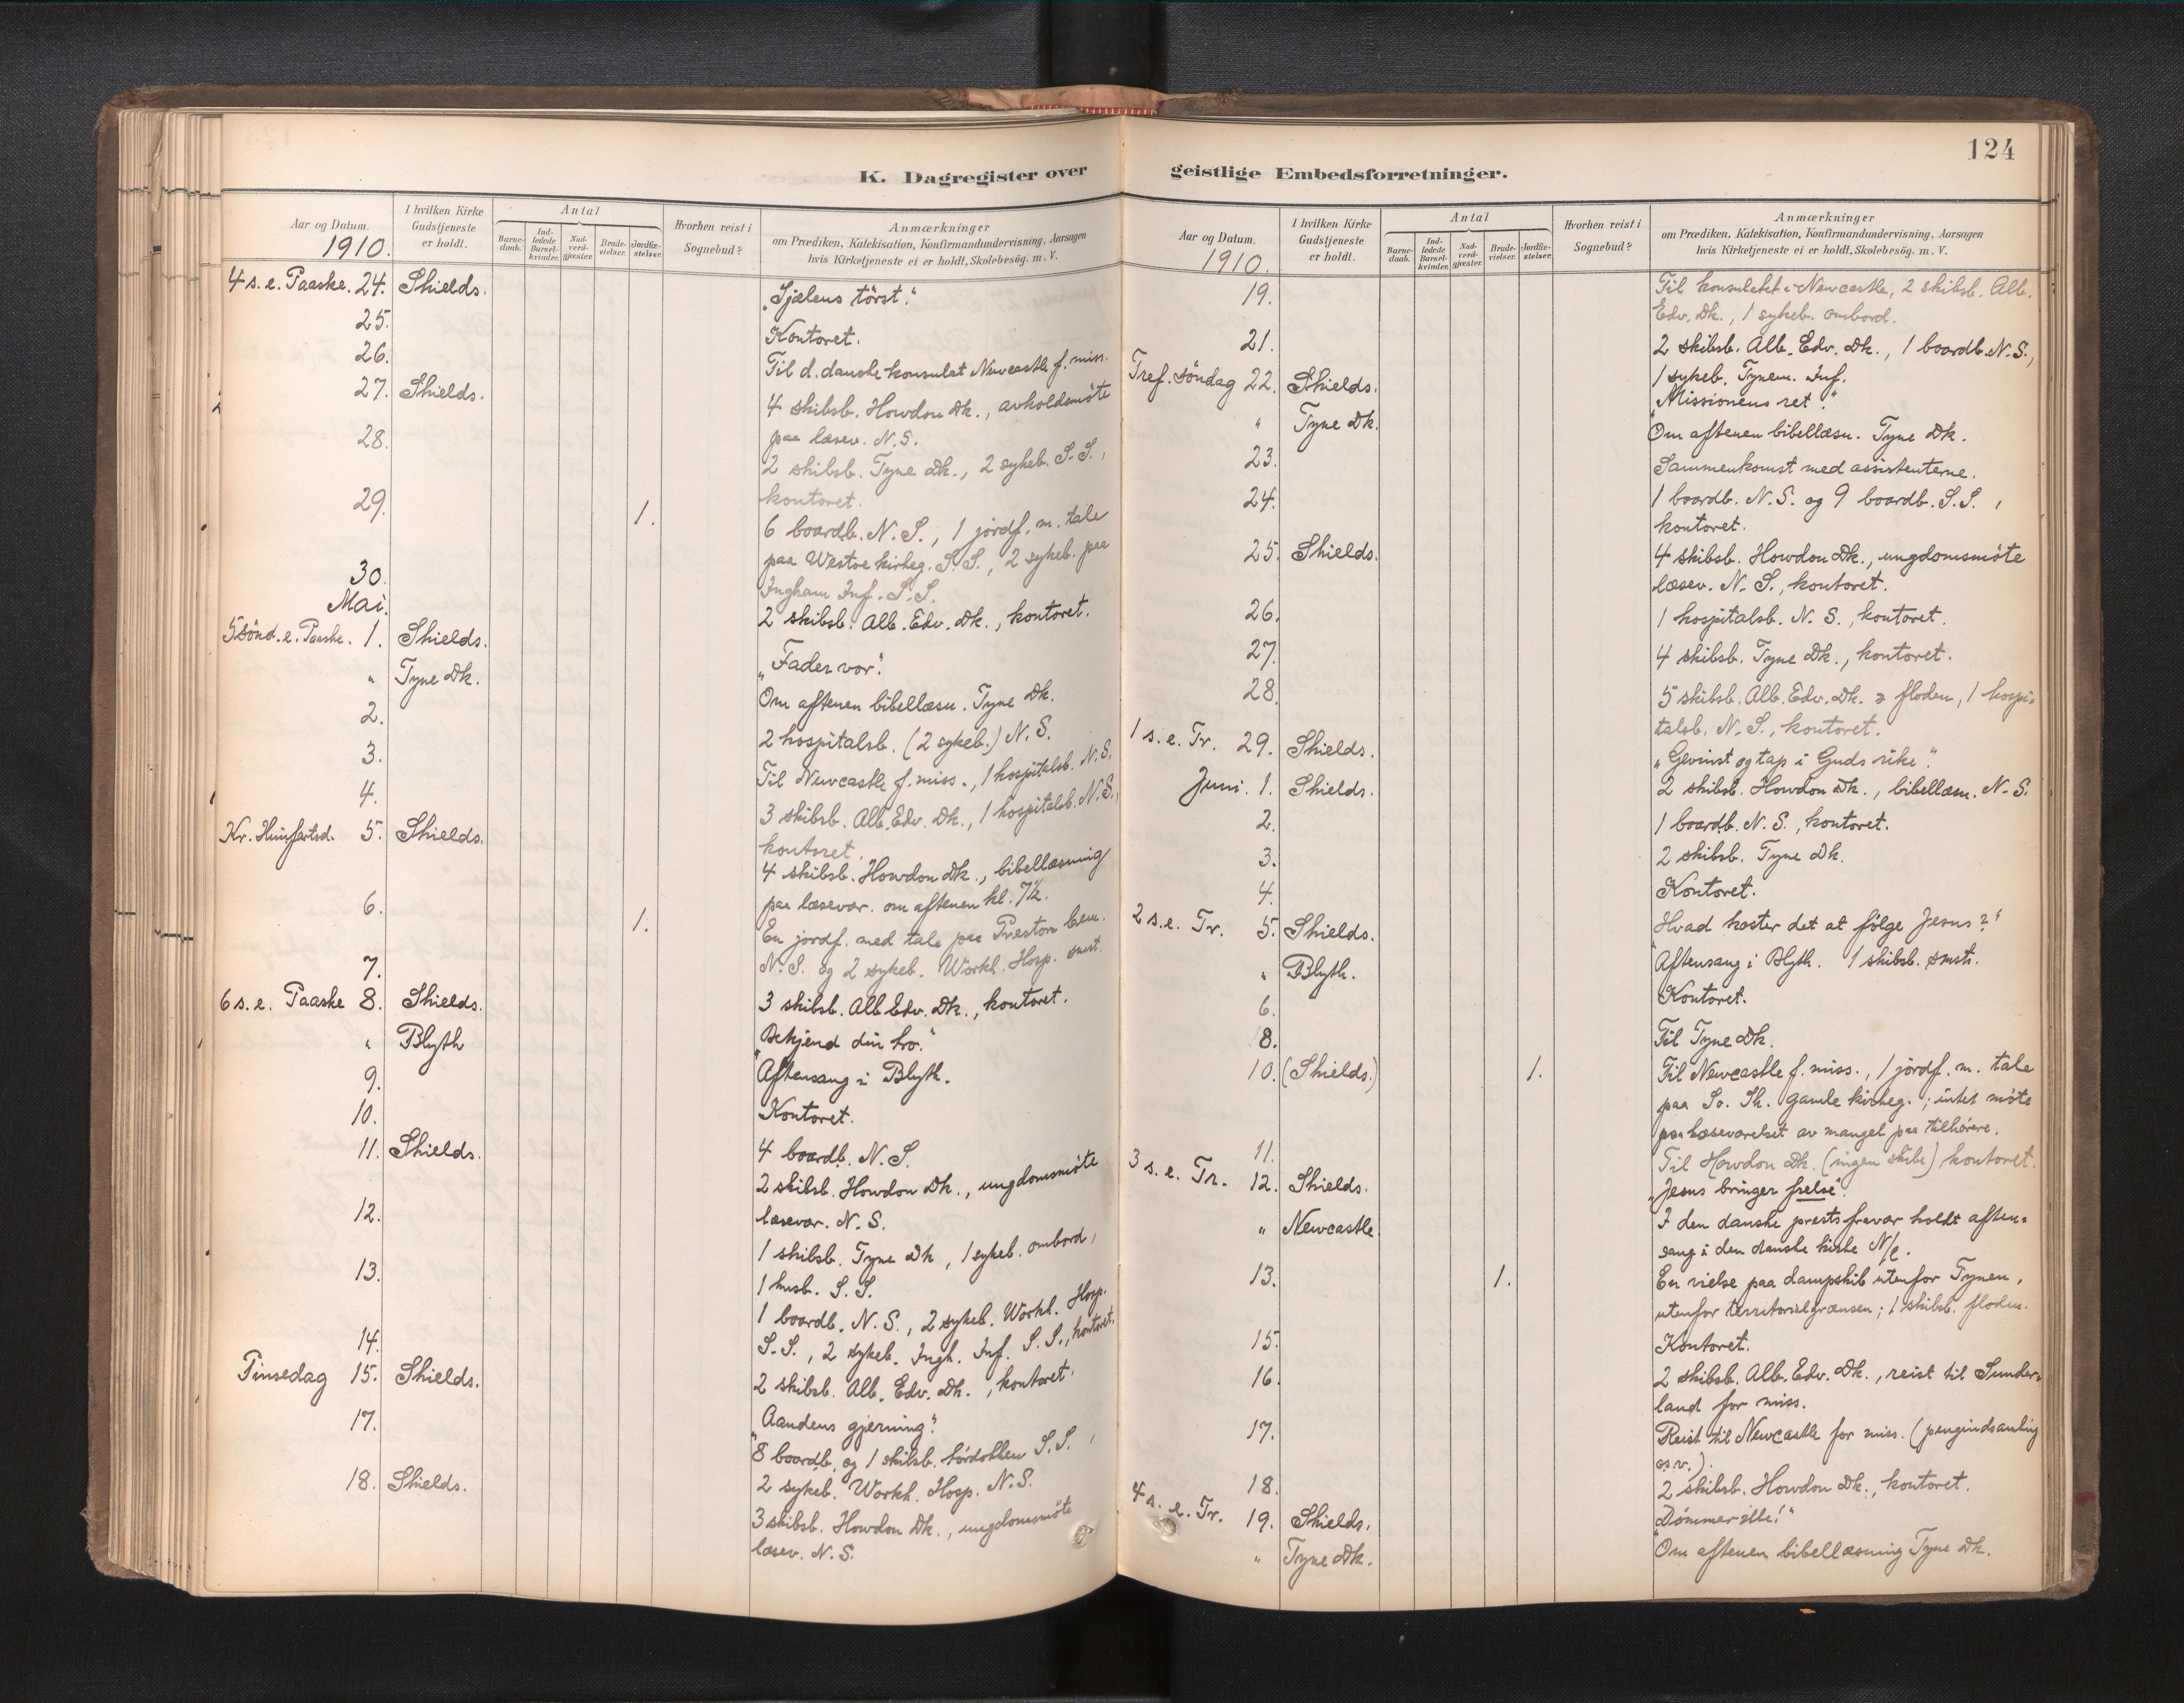 124
K. Dagregister over geistlige Embedsforretninger.
Aar og Datum.
1910.
I hvilken Kirke Gudstjeneste er holdt.
Antal
Barnedaab.
Indledede Barselkvinder.
Nadverdgjæster.
Brudevielser.
Jordfæstelser.
Hvorhen reist i Sognebud?
Anmærkninger
om Prædiken, Katekisation, Konfirmandundervisning, Aarsagen
hvis Kirketjeneste ei er holdt, Skolebesög. m. V.
4 s. e. Paaske. 24. Shields. „Sjælens törst."
25. Kontoret.
26. Til d. danske konsulat Newcastle f. miss.
27. Shields. 4 skibsb. Howdon Dk., avholdsmöte
paa læsev. N.S.
28. 2 skibsb. Tyne Dk., 2 sykeb. S.S.,
kontoret.
29. 1. 6 boardb. N.S., 1 jordf. m. tale
paa Westoe kirkeg. S.S., 2 sykeb. paa
Ingham Inf. S.S.
30. 2 skibsb. Alb. Edv. Dk., kontoret.
Mai.
5 sönd. e. Paaske. 1. Shields. „Fader vor".
" Tyne Dk. Om aftenen bibellæsn. Tyne Dk.
2. 2 hospitalsb. (2 sykeb.) N.S.
3. Til Newcastle f. miss., 1 hospitalsb. N.S.
4. 3 skibsb. Alb. Edv. Dk., 1 hospitalsb. N.S.,
kontoret.
Kr. Himfartsd. 5. Shields. 4 skibsb. Howdon Dk., bibellæsning
paa læsevær. om aftenen kl. 7½.
6. 1. En jordf. med tale paa Preston Cem.
N.S. og 2 sykeb. Workh. Hosp. smst.
7. 3 skibsb. Alb Edv. Dk., kontoret.
6 s. e. Paaske 8. Shields. „Bekjend din tro."
" Blyth Aftensang i Blyth.
9. Kontoret.
10. 4 boardb. N.S.
11. Shields. 2 skibsb. Howdon Dk., ungdomsmöte
læsevær. N.S.
12. 1 skibsb. Tyne Dk, 1 sykeb. ombord,
1 husb. S.S.
13. 1 boardb. N.S., 2 sykeb. Workh. Hosp.
S.S., 2 sykeb. Ingh. Inf. S.S., kontoret.
14. 2 skibsb. Alb. Edv. Dk., kontoret.
Pinsedag 15. Shields. „Aandens gjerning".
17. 8 boardb. og 1 skibsb. tördokken S.S.,
2 sykeb. Workh. Hosp. N.S.
18. Shields. 3 skibsb. Howdon Dk., ungdomsmöte
læsev. N.S.
Aar og Datum.
1910.
I hvilken Kirke Gudstjeneste er holdt.
Antal
Barnedaab.
Indledede Barselkvinder.
Nadverdgjæster.
Brudevielser.
Jordfæstelser.
Hvorhen reist i Sognebud?
Anmærkninger
om Prædiken, Katekisation, Konfirmandundervisning, Aarsagen
hvis Kirketjeneste ei er holdt, Skolebesög. m. V.
19. Til konsulatet i Newcastle, 2 skibsb. Alb.
Edv. Dk., 1 sykeb. ombord.
21. 2 skibsb. Alb. Edv. Dk., 1 boardb. N.S.,
1 sykeb. Tynem. Inf.
Tref. söndag 22. Shields. „Missionens ret".
" Tyne Dk. Om aftenen bibellæsn. Tyne Dk.
23. Sammenkomst med assistenterne.
24. 1 boardb. N.S. og 9 boardb. S.S.,
kontoret.
25. Shields. 4 skibsb. Howdon Dk., ungdomsmöte
læsev. N.S., kontoret.
26. 1 hospitalsb. N.S., kontoret.
27. 4 skibsb. Tyne Dk., kontoret.
28. 5 skibsb. Alb. Edv. Dk. & floden, 1 hospi-
talsb. N.S., kontoret.
1 s. e. Tr. 29. Shields. „Gevinst og tap i Guds rike".
Juni. 1. Shields. 2 skibsb. Howdon Dk., bibellæsn. N.S.
2. 1 boardb. N.S., kontoret.
3. 2 skibsb. Tyne Dk.
4. Kontoret.
2 s. e. Tr. 5. Shields. „Hvad koster det at fölge Jesus?"
" Blyth. Aftensang i Blyth. 1 skibsb. smst.
6. Kontoret.
8. Til Tyne Dk.
10. (Shields.) 1. Til Newcastle f. miss., 1 jördf. m. tale
paa So. Sh. gamle kirkeg.; intet möte
paa læseværelset av mangel paa tilhörere.
11. Til Howdon Dk. (ingen skibe) kontoret.
3 s. e. Tr. 12. Shields. „Jesus bringer frelse".
" Newcastle I den danske prests fravær holdt aften-
sang i den danske kirke N/c.
13. 1. En vielse paa dampskib utenfor Tynen,
utenfor territorialgrænsen; 1 skibsb. floden.
15. Kontoret.
16. 2 skibsb. Alb. Edv. Dk., reist til Sunder-
land for miss.
17. Reist til Newcastle for miss. (pengeindsamling
osv.).
18. 2 skibsb. Howdon Dk., kontoret.
4 s. e. Tr. 19. Shields. „Dömmer ikke!"
" Tyne Dk. Om aftenen bibellæsning Tyne Dk.